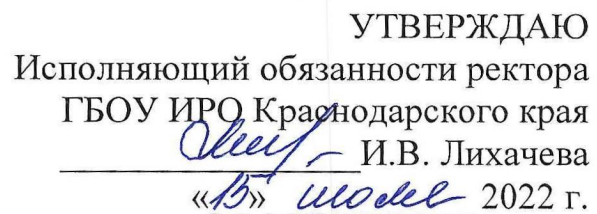 УТВЕРЖДАЮ
Исполняющий обязанности ректора
ГБОУ ИРО Краснодарского края
И.В. Лихачева
«15» июля 2022 г.